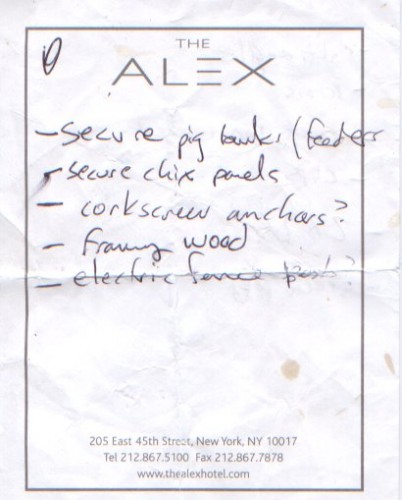 THE
ALEX
- Secure pig tanks (feeders
- secure chix panels
- corkscrew anchors?
- framing wood
- electric fence posts?
205 East 45th Street, New York, NY 10017
Tel 212.867.5100 Fax 212.867.7878
www.thealexhotel.com